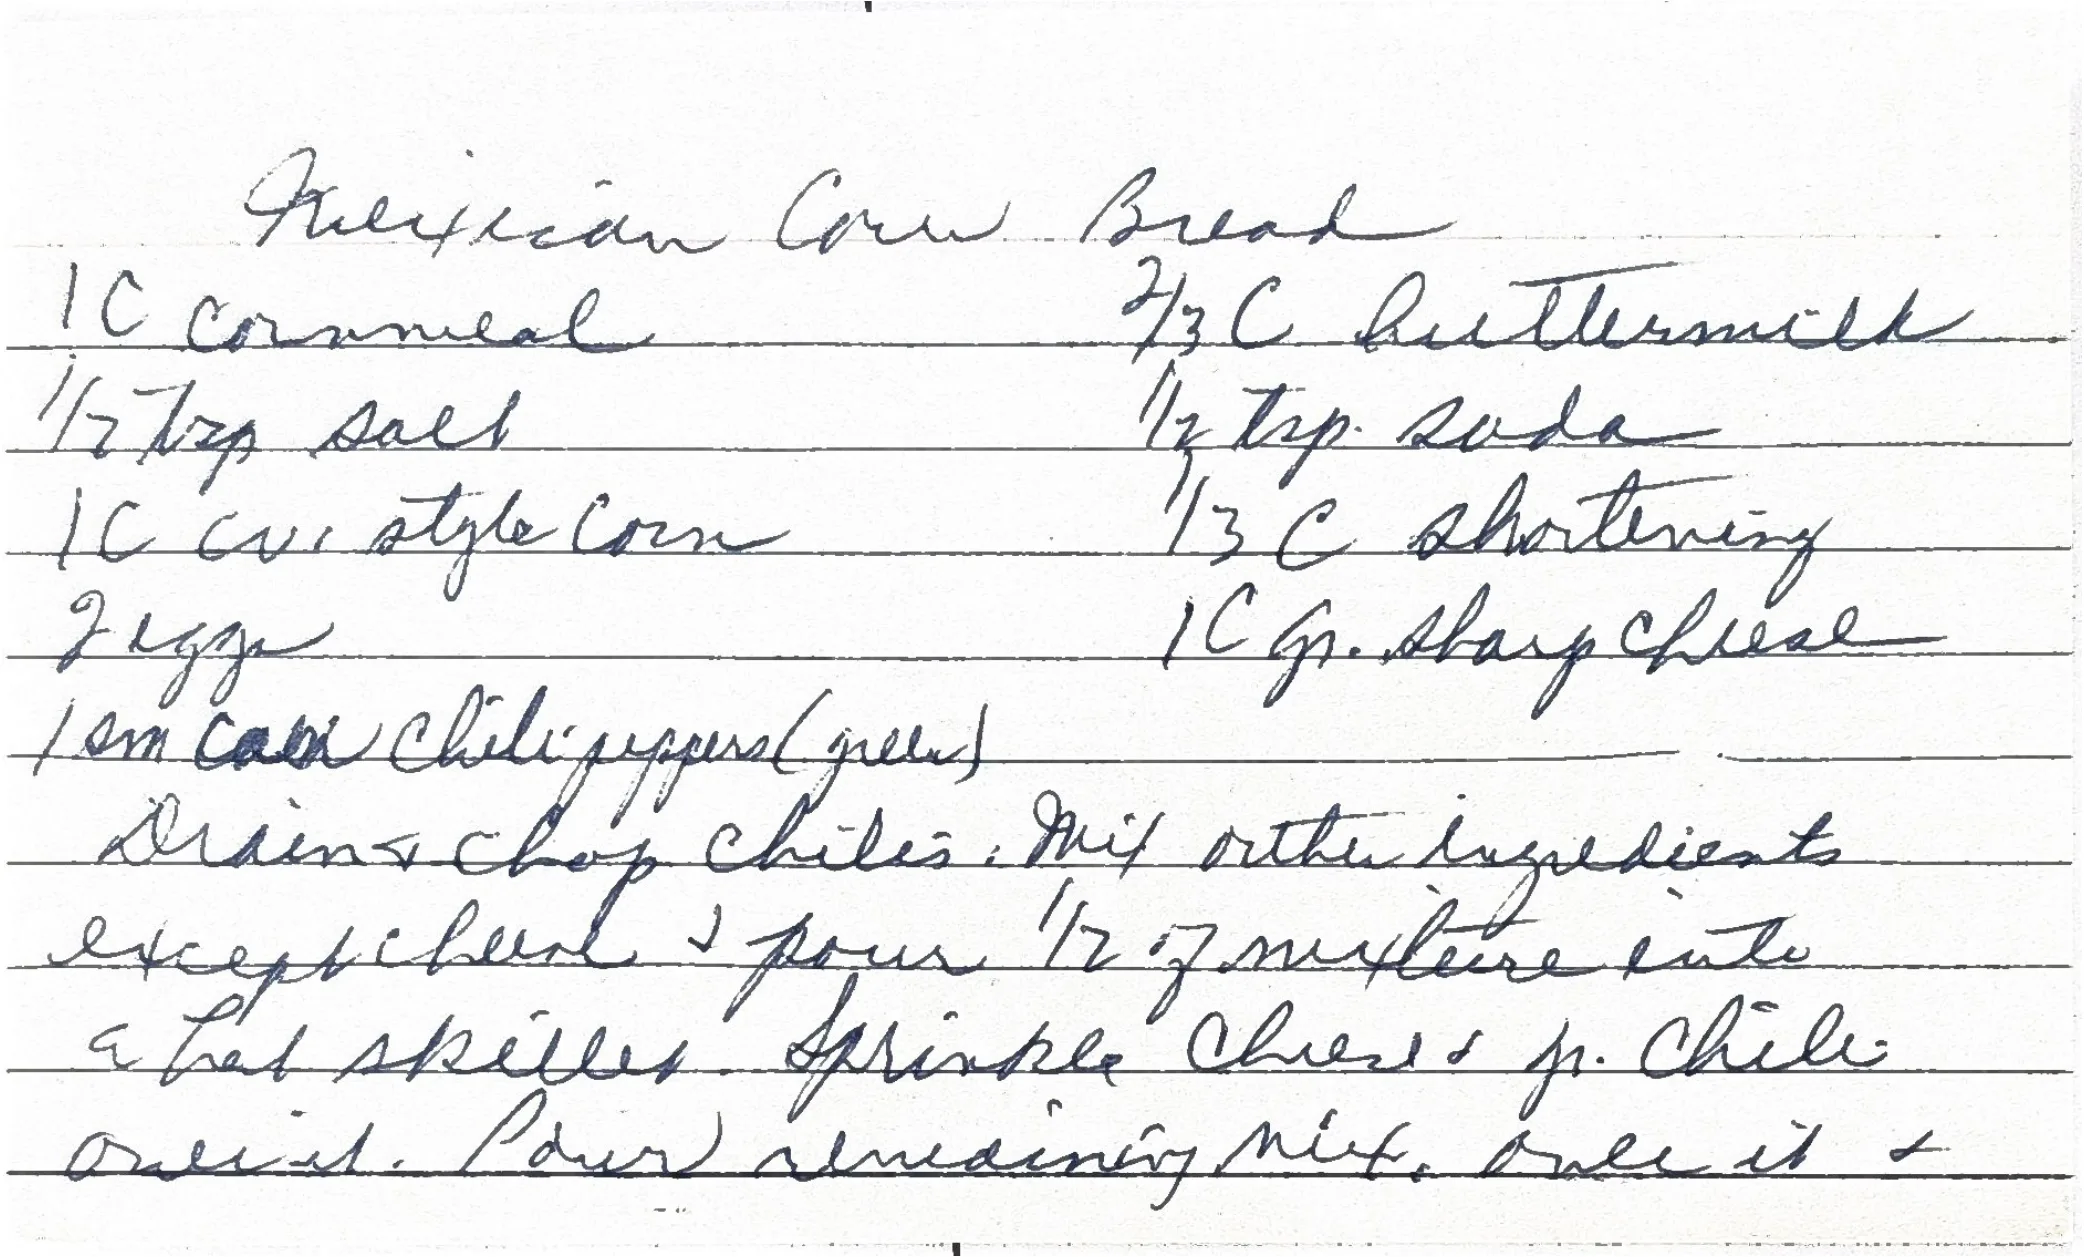 Mexican Corn Bread
1 C cornmeal 2/3 C buttermilk
1/2 tsp salt 1/2 tsp. soda
1 C cr. style Corn 1/3 C shortening
2 eggs 1 C gr. sharp cheese
1 sm can Chili peppers (green)
Drain & chop chilis. Mix other ingredients
except cheese & pour 1/2 of mixture into
a hot skillet. Sprinkle Cheese & gr. Chili
over it. Pour remaining mix. over it &